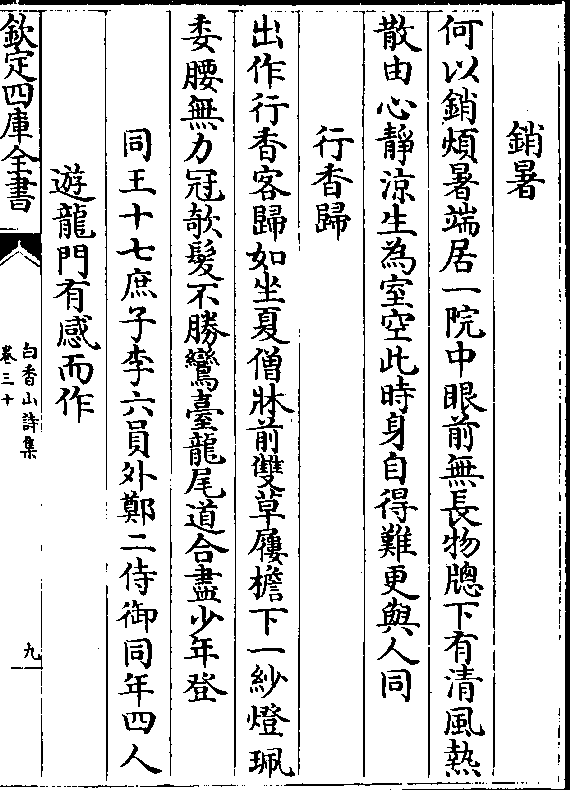 銷暑
何以銷煩暑端居一院中眼前無長物牕下有清風熱
散由心靜涼生為室空此時身自得難更與人同
行香歸
出作行香客歸如坐夏僧牀前雙草屨檐下一紗燈珮
委腰無力冠欹髮不勝鸞臺龍尾道合盡少年登
同王十七庶子李六員外鄭二侍御同年四人
遊龍門有感而作
欽定四庫全書
白香山詩集
卷三十
九